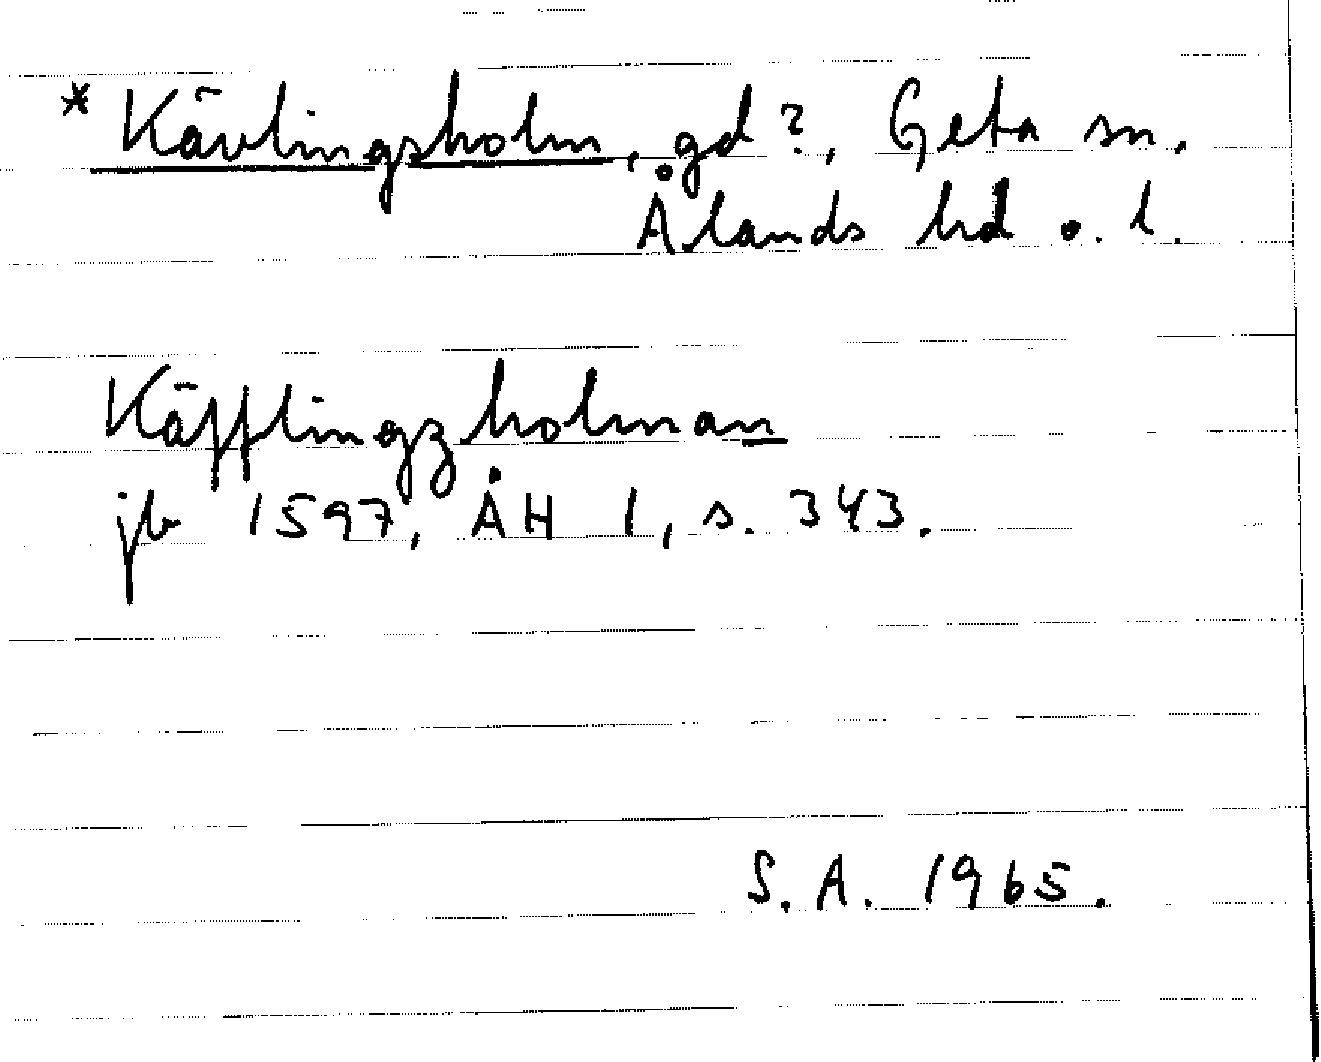 * Kävlingsholm, gd?, Geta sn.
Ålands hd o. l.
Käfflingzholman
jb 1597, ÅH 1, s. 343.
S. A. 1965.